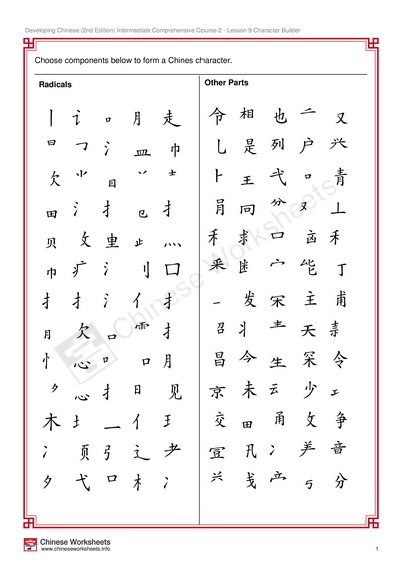 Developing Chinese (2nd Edition) Intermediate Comprehensive Course 2 - Lesson 9 Character Builder
Choose components below to form a Chines character.
Radicals
Other Parts
丨 讠 口 月 走
令 相 也 亠 又
日 氵 皿 巾
乚 是 列 户 兴
欠 目
卜 王 弋 口 青
田 氵 扌 扌
肙 向 分 又 丄
贝 攵 里 止 灬
禾 求 口 禾
巾 疒 氵 刂 口
宀 能 丁
扌 扌 氵 亻 扌
一 发 宋 主 甫
月 欠 口 扌
召 丬 龶 天
忄 心 口 口 月
昌 今 生 罙 令
心 扌 日 见
京 未 云 少
木 一 亻 王
交 田 甬 攵 争
冫 页 弓 辶 耂
亘 凡 冫 音
夕 弋 口 木 冫
戋 丂 分
Chinese Worksheets
Chinese Worksheets
www.chineseworksheets.info
1